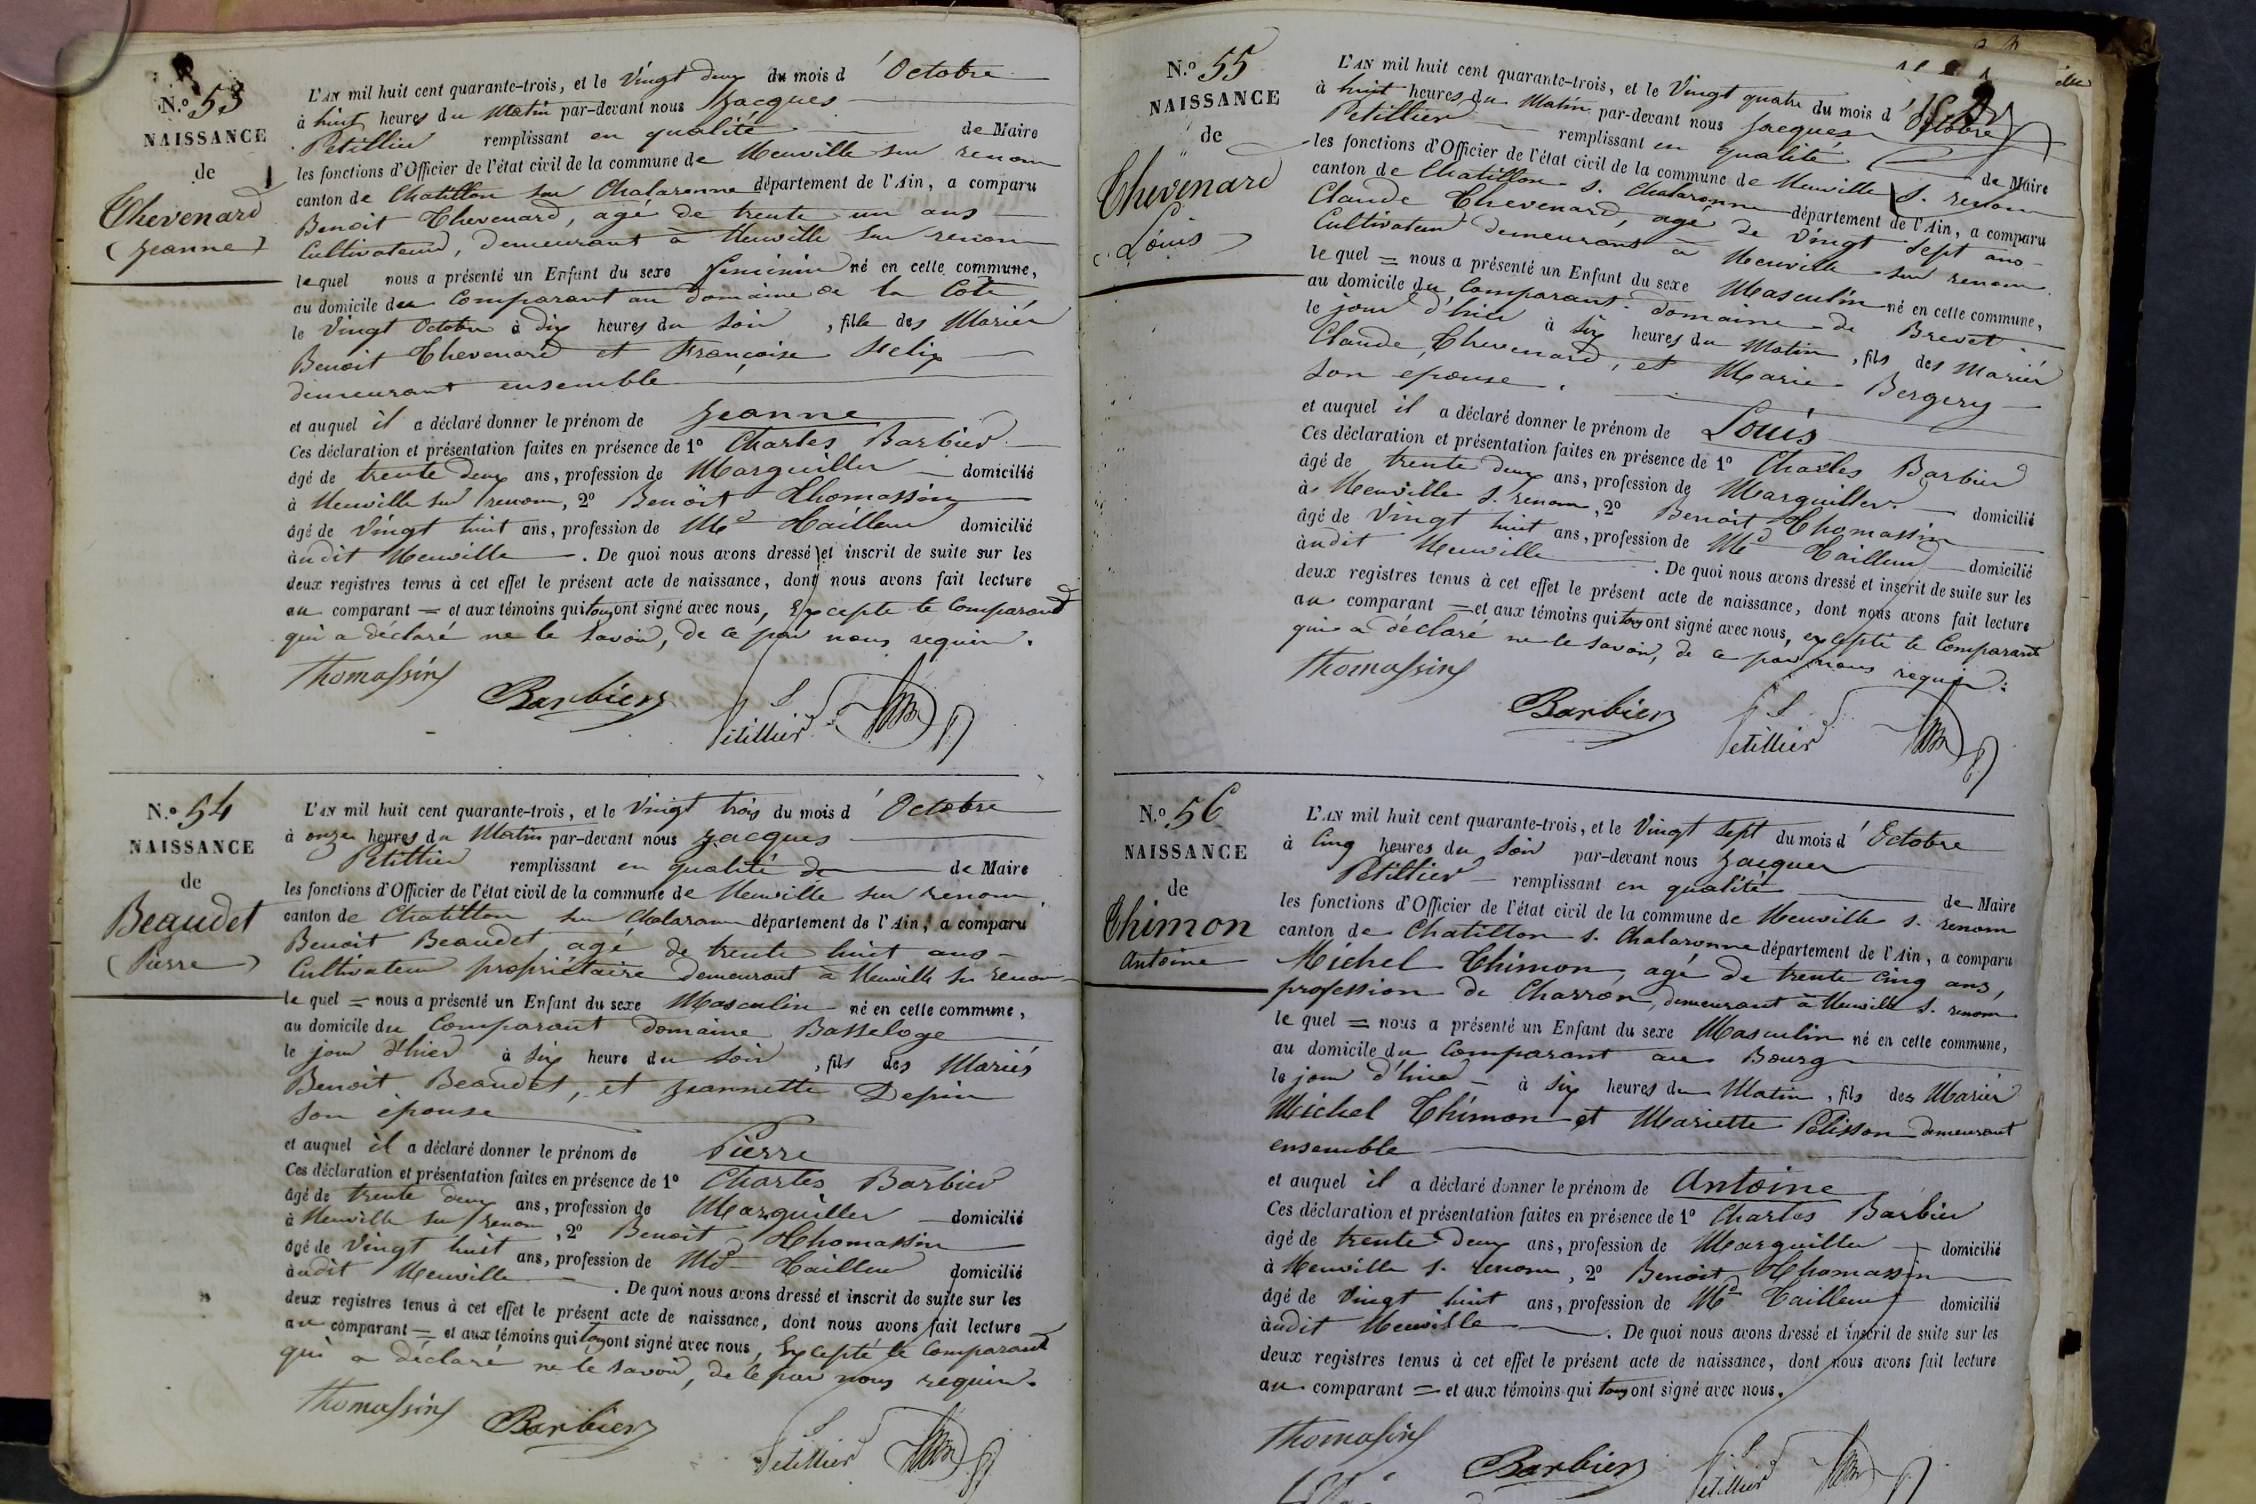 N.º 53
NAISSANCE
de
Chevenard
(Jeanne)
L'AN mil huit cent quarante-trois, et le Vingt deux du mois d'Octobre
à huit heures du Matin par-devant nous Jacques
Petillier remplissant en qualité de Maire
les fonctions d'Officier de l'état civil de la commune de Neuville sur renom
canton de Chatillon sur Chalaronne département de l'Ain, a comparu
Benoit Chevenard, agé de trente un ans
Cultivateur, demeurant à Neuville sur renom
lequel nous a présenté un Enfant du sexe feminin né en cette commune,
au domicile du Comparant au domaine de la Côte
le Vingt Octobre à dix heures du Soir, fille des Mariés
Benoit Chevenard et Françoise Felix
demeurant ensemble
et auquel il a déclaré donner le prénom de Jeanne
Ces déclaration et présentation faites en présence de 1º Charles Barbier
âgé de trente deux ans, profession de Marguiller domicilié
à Neuville sur renom, 2º Benoit Thomassin
âgé de Vingt huit ans, profession de Md Tailleur domicilié
audit Neuville. De quoi nous avons dressé et inscrit de suite sur les
deux registres tenus à cet effet le présent acte de naissance, dont nous avons fait lecture
au comparant = et aux témoins qui tous ont signé avec nous, Excepté le Comparant
qui a déclaré ne le savoir, de ce par nous requis.
Thomassin
Barbier
Petillier
N.º 54
NAISSANCE
de
Beaudet
(Pierre)
L'AN mil huit cent quarante-trois, et le Vingt trois du mois d'Octobre
à onze heures du Matin par-devant nous Jacques
Petillier remplissant en qualité de de Maire
les fonctions d'Officier de l'état civil de la commune de Neuville sur renom
canton de Chatillon sur Chalaronne département de l'Ain, a comparu
Benoit Beaudet, agé de trente huit ans
Cultivateur propriétaire demeurant à Neuville sur renom
lequel = nous a présenté un Enfant du sexe Masculin né en cette commune,
au domicile du Comparant domaine Basseloge
le jour d'hier à six heure du soir, fils des Mariés
Benoit Beaudet, et Jeannette Depin
son épouse
et auquel il a déclaré donner le prénom de Pierre
Ces déclaration et présentation faites en présence de 1º Charles Barbier
âgé de trente deux ans, profession de Marguiller domicilié
à Neuville sur renom, 2º Benoit Thomassin
âgé de Vingt huit ans, profession de Md Tailleur domicilié
audit Neuville. De quoi nous avons dressé et inscrit de suite sur les
deux registres tenus à cet effet le présent acte de naissance, dont nous avons fait lecture
au comparant = et aux témoins qui tous ont signé avec nous, Excepté le Comparant
qui a déclaré ne le savoir, de le par nous requis.
Thomassin
Barbier
Petillier
N.º 55
NAISSANCE
de
Chevenard
Louis
L'AN mil huit cent quarante-trois, et le Vingt quatre du mois d'Octobre
à huit heures du Matin par-devant nous Jacques
Petillier remplissant en qualité de Maire
les fonctions d'Officier de l'état civil de la commune de Neuville s. renom
canton de Chatillon s. Chalaronne département de l'Ain, a comparu
Claude Chevenard, agé de Vingt Sept ans
Cultivateur demeurant à Neuville sur renom
lequel = nous a présenté un Enfant du sexe Masculin né en cette commune,
au domicile du Comparant domaine de Brevet
le jour d'hier à six heures du Matin, fils des Mariés
Claude Chevenard, et Marie Bergery
son epouse.
et auquel il a déclaré donner le prénom de Louis
Ces déclaration et présentation faites en présence de 1º Charles Barbier
âgé de trente deux ans, profession de Marguiller domicilié
à Neuville s. renom, 2º Benoit Thomassin
âgé de Vingt huit ans, profession de Md Tailleur domicilié
audit Neuville. De quoi nous avons dressé et inscrit de suite sur les
deux registres tenus à cet effet le présent acte de naissance, dont nous avons fait lecture
au comparant = et aux témoins qui tous ont signé avec nous, excepté le Comparant
qui a déclaré ne le savoir, de ce par nous requis.
Thomassin
Barbier
Petillier
N.º 56
NAISSANCE
de
Thimon
Antoine
L'AN mil huit cent quarante-trois, et le Vingt Sept du mois d'Octobre
à Cinq heures du Soir par-devant nous Jacques
Petillier remplissant en qualité de Maire
les fonctions d'Officier de l'état civil de la commune de Neuville s. renom
canton de Chatillon s. Chalaronne département de l'Ain, a comparu
Michel Thimon, agé de trente Cinq ans,
profession de Charron, demeurant à Neuville s. renom
lequel = nous a présenté un Enfant du sexe Masculin né en cette commune,
au domicile du Comparant au Bourg
le jour d'hier à six heures du Matin, fils des Mariés
Michel Thimon et Mariette Pelisson demeurant
ensemble
et auquel il a déclaré donner le prénom de Antoine
Ces déclaration et présentation faites en présence de 1º Charles Barbier
âgé de trente deux ans, profession de Marguiller domicilié
à Neuville s. renom, 2º Benoit Thomassin
âgé de Vingt huit ans, profession de Md Tailleur domicilié
audit Neuville. De quoi nous avons dressé et inscrit de suite sur les
deux registres tenus à cet effet le présent acte de naissance, dont nous avons fait lecture
au comparant = et aux témoins qui tous ont signé avec nous.
Thomassin
Barbier
Petillier